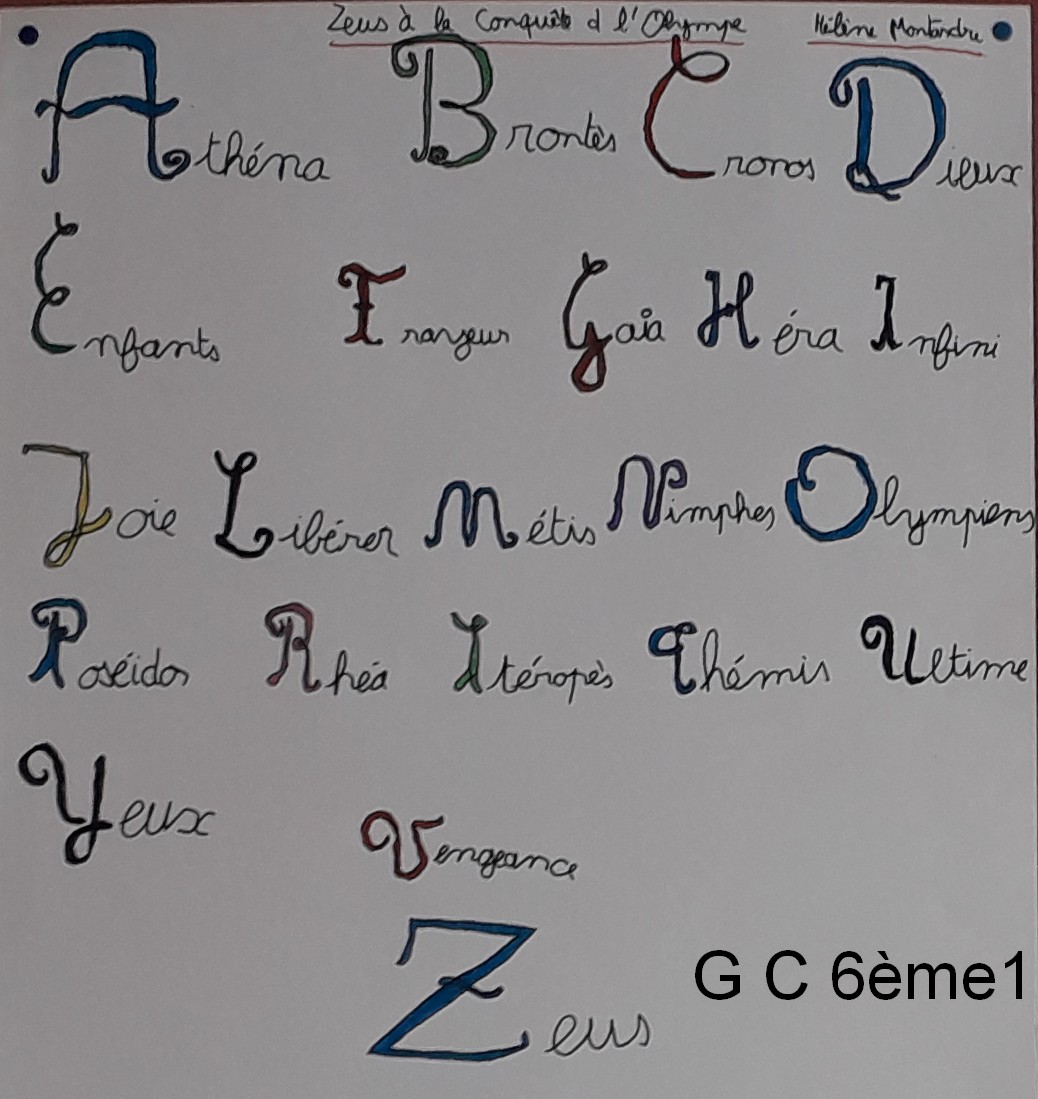 Zeus à la Conquête d l'Olympe Hélène Montardre
Athéna Brontès Cronos Dieux
Enfants Frayeur Gaïa Héra Infini
Joie Libérer Métis Nimphes Olympiens
Poséidon Rhéa Stéropès Thémis Ultime
Yeux Vengeance
Zeus
G C 6ème1